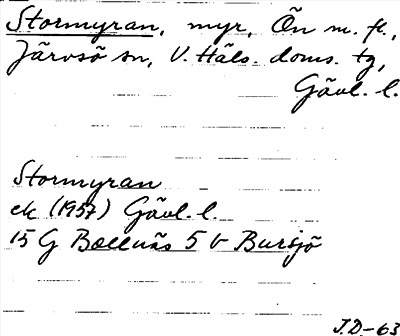 Stormyran, myr, Ön m. fl.,
Järvsö sn, V. Häls. doms. tg,
Gävl. l.
Stormyran
ek (1957) Gävl. l.
15 G Bollnäs 5 b Bursjö
J.D-63